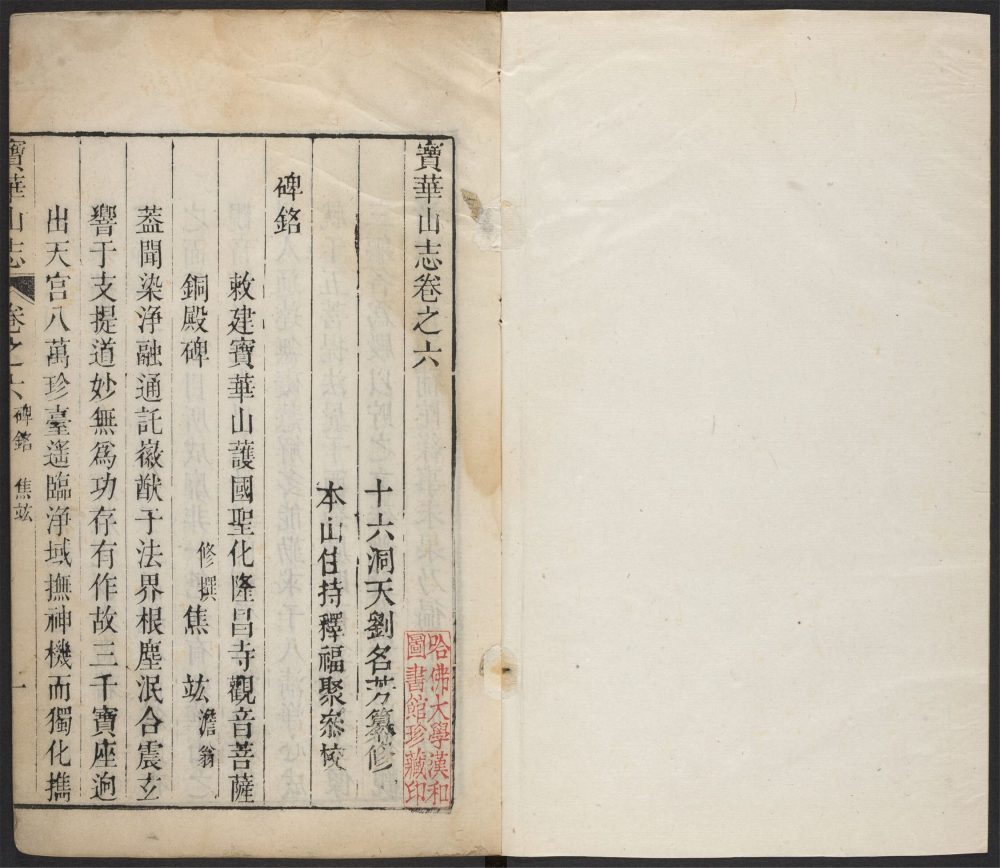 寶華山志卷之六
十六洞天劉名芳纂修
本山住持釋福聚叅校
碑銘
敕建寶華山護國聖化隆昌寺觀音菩薩
銅殿碑
修撰焦竑澹翁
葢聞染浄融通託徽猷于法界根塵泯合震玄
響于支提道妙無爲功存有作故三千寶座逈
出天宫八萬珍臺遥臨浄域撫神機而獨化擕
寶華山志
卷之六
碑銘
焦竑
一
哈佛大學漢和
圖書館珍藏印